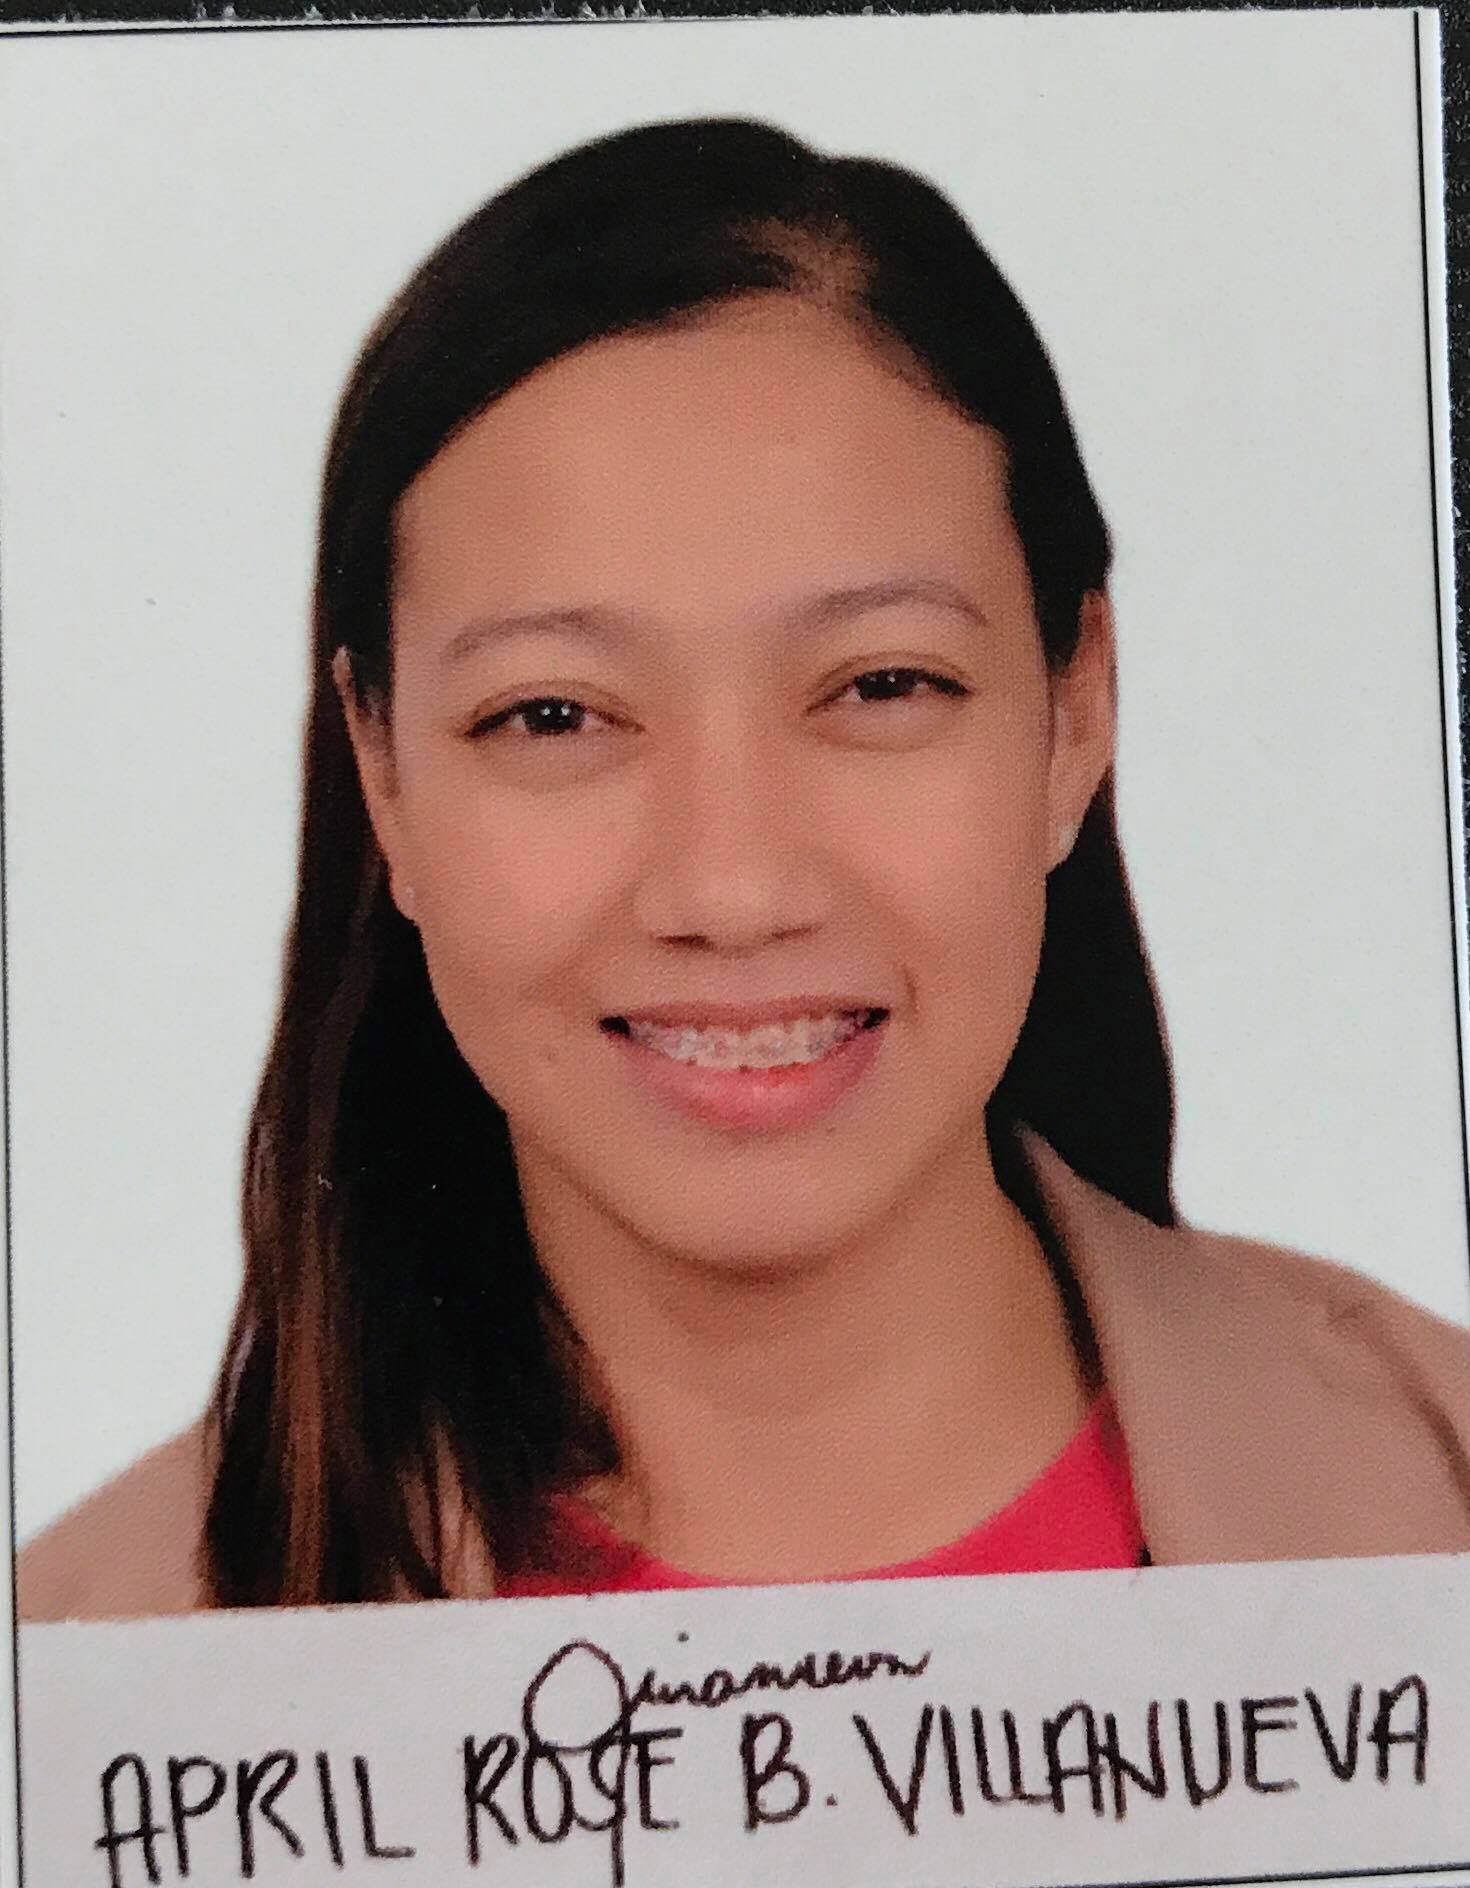 APRIL ROSE B. VILLANUEVA